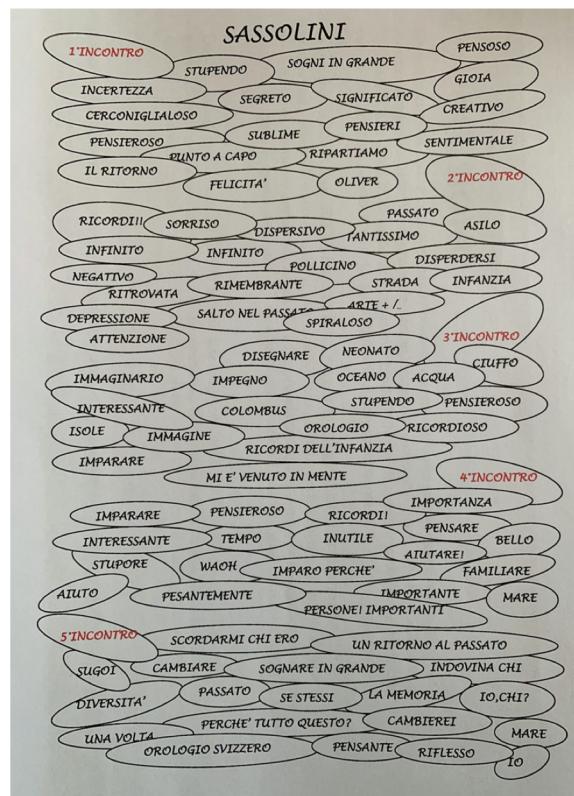 SASSOLINI
1°INCONTRO
PENSOSO
STUPENDO
SOGNI IN GRANDE
GIOIA
INCERTEZZA
SEGRETO
SIGNIFICATO
CREATIVO
CERCONIGLIALOSO
PENSIERI
PENSIEROSO
SUBLIME
SENTIMENTALE
PUNTO A CAPO
RIPARTIAMO
IL RITORNO
FELICITA'
OLIVER
2°INCONTRO
PASSATO
RICORDI!!
SORRISO
DISPERSIVO
TANTISSIMO
ASILO
INFINITO
INFINITO
POLLICINO
DISPERDERSI
NEGATIVO
RITROVATA
RIMEMBRANTE
STRADA
INFANZIA
DEPRESSIONE
SALTO NEL PASSATO
ARTE + /..
SPIRALOSO
ATTENZIONE
3°INCONTRO
DISEGNARE
NEONATO
CIUFFO
IMMAGINARIO
IMPEGNO
OCEANO
ACQUA
INTERESSANTE
COLOMBUS
STUPENDO
PENSIEROSO
ISOLE
IMMAGINE
OROLOGIO
RICORDIOSO
RICORDI DELL'INFANZIA
IMPARARE
MI E' VENUTO IN MENTE
4°INCONTRO
IMPORTANZA
IMPARARE
PENSIEROSO
RICORDI!
PENSARE
INTERESSANTE
TEMPO
INUTILE
BELLO
AIUTARE!
STUPORE
WAOH
IMPARO PERCHE'
FAMILIARE
AIUTO
PESANTEMENTE
IMPORTANTE
MARE
PERSONE! IMPORTANTI
5°INCONTRO
SCORDARMI CHI ERO
UN RITORNO AL PASSATO
SUGOI
CAMBIARE
SOGNARE IN GRANDE
INDOVINA CHI
DIVERSITA'
PASSATO
SE STESSI
LA MEMORIA
IO,CHI?
PERCHE' TUTTO QUESTO?
CAMBIEREI
UNA VOLTA
MARE
OROLOGIO SVIZZERO
PENSANTE
RIFLESSO
IO